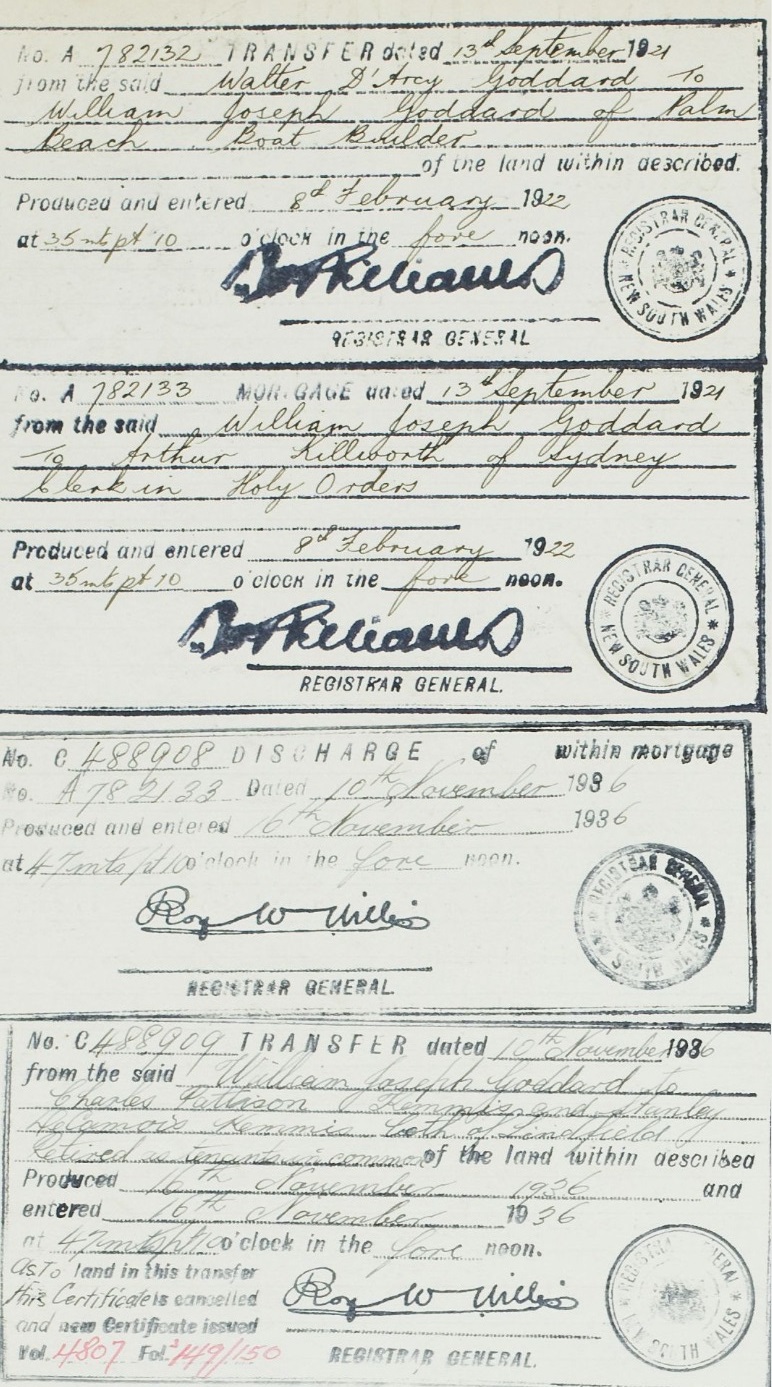 No. A 782132 TRANSFER dated 13th September 1921
from the said Walter D'Arcy Goddard To
William Joseph Goddard of Palm
Beach Boat Builder
of the land within described.
Produced and entered 8th February 1922
at 35 mts pt 10 o'clock in the fore noon.
REGISTRAR GENERAL
REGISTRAR GENERAL NEW SOUTH WALES
No. A 782133 MORTGAGE dated 13th September 1921
from the said William Joseph Goddard
To Arthur Killworth of Sydney
Clerk in Holy Orders
Produced and entered 8th February 1922
at 35 mts pt 10 o'clock in the fore noon.
REGISTRAR GENERAL.
REGISTRAR GENERAL NEW SOUTH WALES
No. C 488908 DISCHARGE of within mortgage
No. A 782133 Dated 10th November 1936
Produced and entered 16th November 1936
at 47 mts pt 10 o'clock in the fore noon.
Roy W Willis
REGISTRAR GENERAL.
REGISTRAR GENERAL NEW SOUTH WALES
No. C 488909 TRANSFER dated 10th November 1936
from the said William Joseph Goddard to
Charles Pattison Kemmis and Stanley
Kemmis both of Lindfield
Retired as tenants in common of the land within described
Produced 16th November 1936 and
entered 16th November 1936
at 47 mts pt 10 o'clock in the fore noon.
As To land in this transfer
this Certificate is cancelled
and new Certificate issued
Vol. 4807 Fols 149/150
Roy W Willis
REGISTRAR GENERAL.
REGISTRAR GENERAL NEW SOUTH WALES